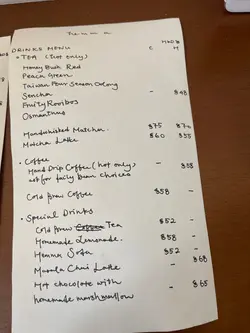 Hemma
DRINKS MENU
C H
• TEA (hot only)
Honey Bush Red
Peace Green
Taiwan Four Season Oolong
Sencha - $48
Fruity Rooibos
Osmanthus
Handwhisked Matcha. $75 $70
Matcha Latte $60 $55
• Coffee
Hand Drip Coffee (hot only) - $58
ask for daily bean choices
Cold Brew Coffee $58 -
• Special Drinks
Cold Brew Tea $52 -
Homemade Lemonade. $58 -
Hemma Soda $52 -
Masala Chai Latte - $68
Hot chocolate with
homemade marshmallow - $65